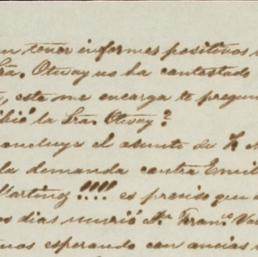 n tener informes positivos
Sra. Otway no ha contestado
, este me encarga te pregun
ibio la Sra. Otway?
oncluye el asunto de
la demanda contra Emil
Martinez !!!! es preciso que
os dias murió Dn. Franco. Va
mos esperando con ancias